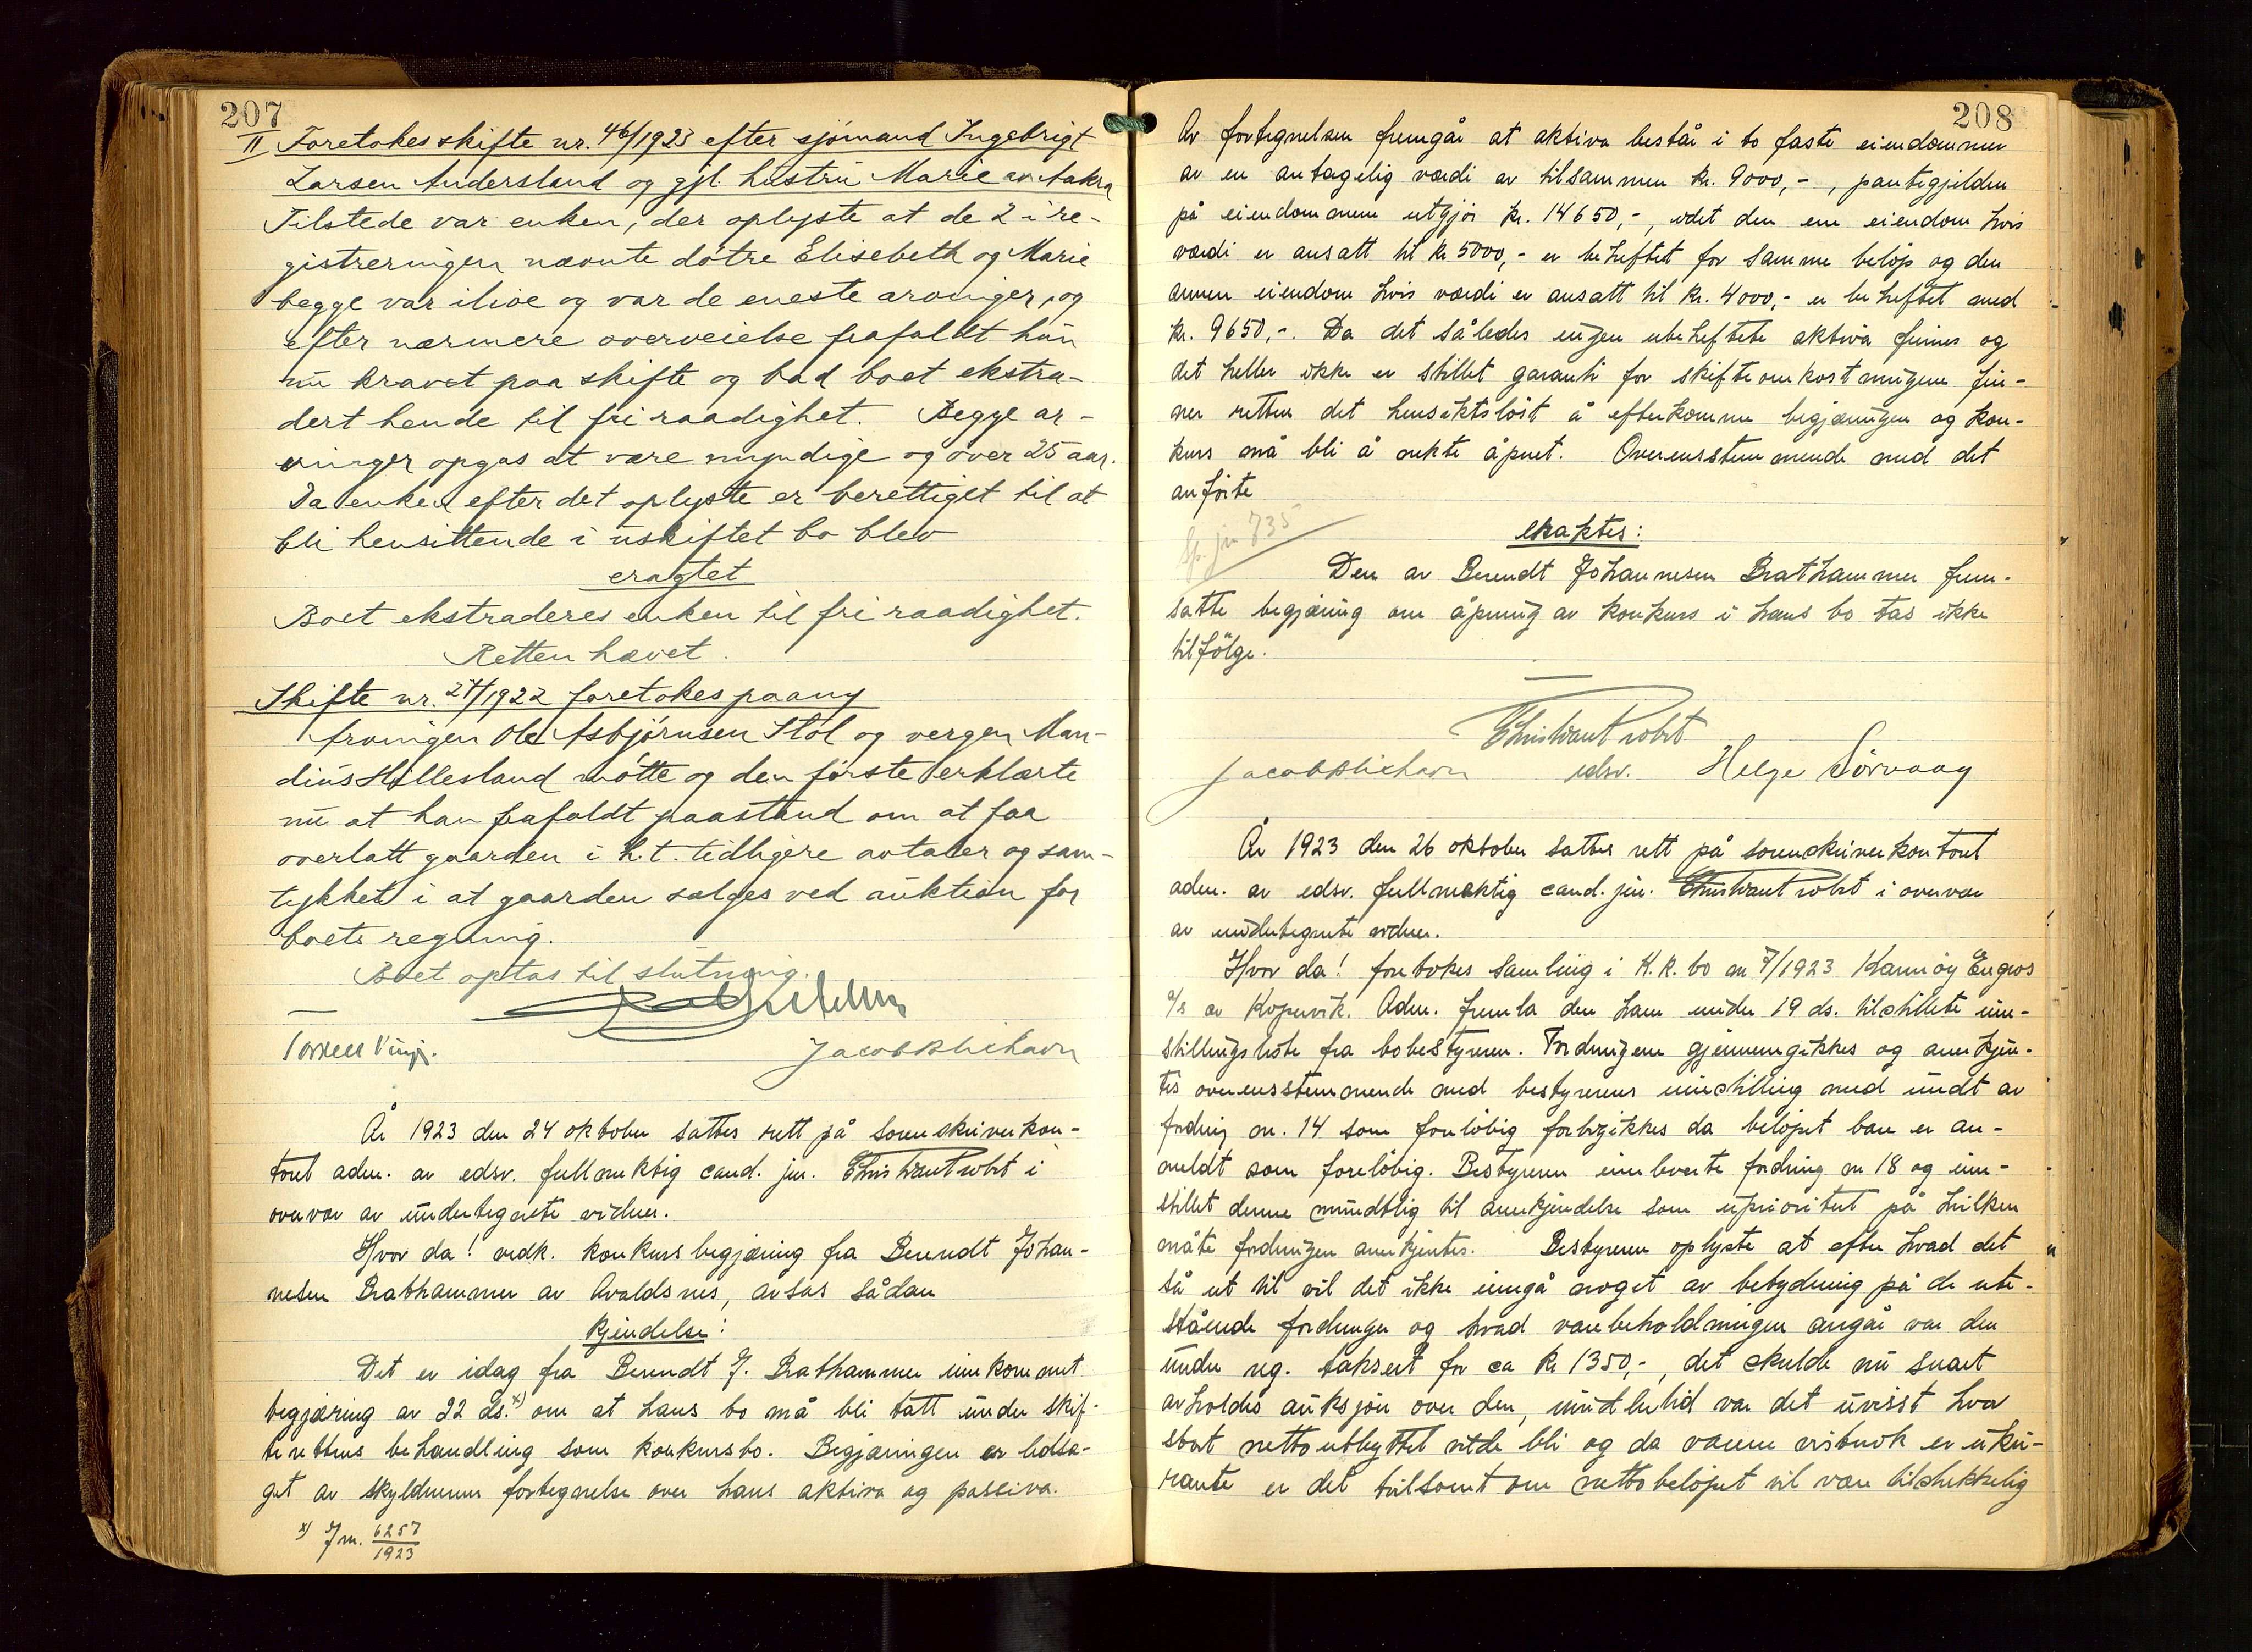 207
II Foretokes skifte nr. 46/1923 efter sjömand Ingebrigt
Larsen Andersland og gjl. hustru Marie av Aakra
Tilstede var enken, der oplyste at de 2 i re-
gistreringen nævnte døtre Elisebeth og Marie
begge var ilive og var de eneste arvinger, og
efter nærmere overveielse frafaldt hun
nu kravet paa skifte og bad boet ekstra-
dert hende til fri raadighet. Begge ar-
vinger opgas at være myndige og over 25 aar.
Da enken efter det oplyste er berettiget til at
bli hensittende i uskiftet bo blev
eragtet
Boet ekstraderes enken til fri raadighet.
Retten hævet.
Skifte nr. 24/1922 foretokes paany
Arvingen Ole Asbjørnsen Stol og vergen Man-
dius Hillesland møtte og den første erklærte
nu at han frafaldt paastand om at faa
overlatt gaarden i h.t. tidligere avtaler og sam-
tykket i at gaarden sælges ved auktion for
boets regning.
Boet optas til slutning.
Torkell Vinje. Jacob Blichavn
År 1923 den 24 oktober sattes rett på sorenskriverkon-
toret adm. av edsv. fullmektig cand. jur. Chr. Want Robt i
overvær av undertegnete vidner.
Hvor da! vedk. konkursbegjæring fra Berendt Johan-
nesen Brathammer av Avaldsnes, avsas sådan
Kjendelse:
Det er idag fra Berendt J. Brathammer innkommet
begjæring av 22 ds. x) om at hans bo må bli tatt under skif-
terettens behandling som konkursbo. Begjæringen er ledsa-
get av skyldnerens fortegnelse over hans aktiva og passiva.
x) Jnr. 6257/1923
208
Av fortegnelsen fremgår at aktiva består i to faste eiendommer
av en antagelig værdi av tilsammen kr. 9000,-, pantegjelden
på eiendommene utgjør kr. 14650,-, idet den ene eiendom hvis
værdi er ansatt til kr 5000,- er beheftet for samme beløp og den
annen eiendom hvis værdi er ansatt til kr. 4000,- er beheftet med
kr. 9650,-. Da det således ingen ubeheftete aktiva finnes og
det heller ikke er stillet garanti for skifteomkostningene fin-
ner retten det hensiktsløst å efterkomme begjæringen og kon-
kurs må bli å nekte åpnet. Overensstemmende med det
anførte
eraktes:
Den av Berendt Johannesen Brathammer frem-
satte begjæring om åpning av konkurs i hans bo tas ikke
tilfølge.
Jacob Blichavn edsv. Helge Sørvaag
År 1923 den 26 oktober sattes rett på sorenskriverkontoret
adm. av edsv. fullmektig cand. jur. Chr. Want Robt i overvær
av undertegnete vidner.
Hvor da! foretokes samling i K.K. bo nr 7/1923 Karmøy Engros
a/s av Kopervik. Adm. fremla den ham under 19 ds. tilstillete inn-
stillingsliste fra bobestyreren. Fordringene gjennemgikkes og anerkjen-
tes overensstemmende med bestyrerens innstilling med undt av
fordring nr. 14 som foreløbig forbigikkes da beløpet bare er an-
meldt som foreløbig. Bestyreren innleverte fordring nr 18 og inn-
stillet denne mundtlig til anerkjendelse som uprioritert på hvilken
måte fordringen anerkjentes. Bestyreren oplyste at efter hvad det
så ut til vil det ikke inngå noget av betydning på de ute-
stående fordringer og hvad varebeholdningen angår var den
under reg. taksert for ca kr 1350,-, det skulde nu snart
avholdes auksjon over den, imidlertid var det uvisst hvor
stort nettoutbyttet vilde bli og da varene visstnok er uku-
rante er det tvilsomt om nettobeløpet vil være tilstrekkelig